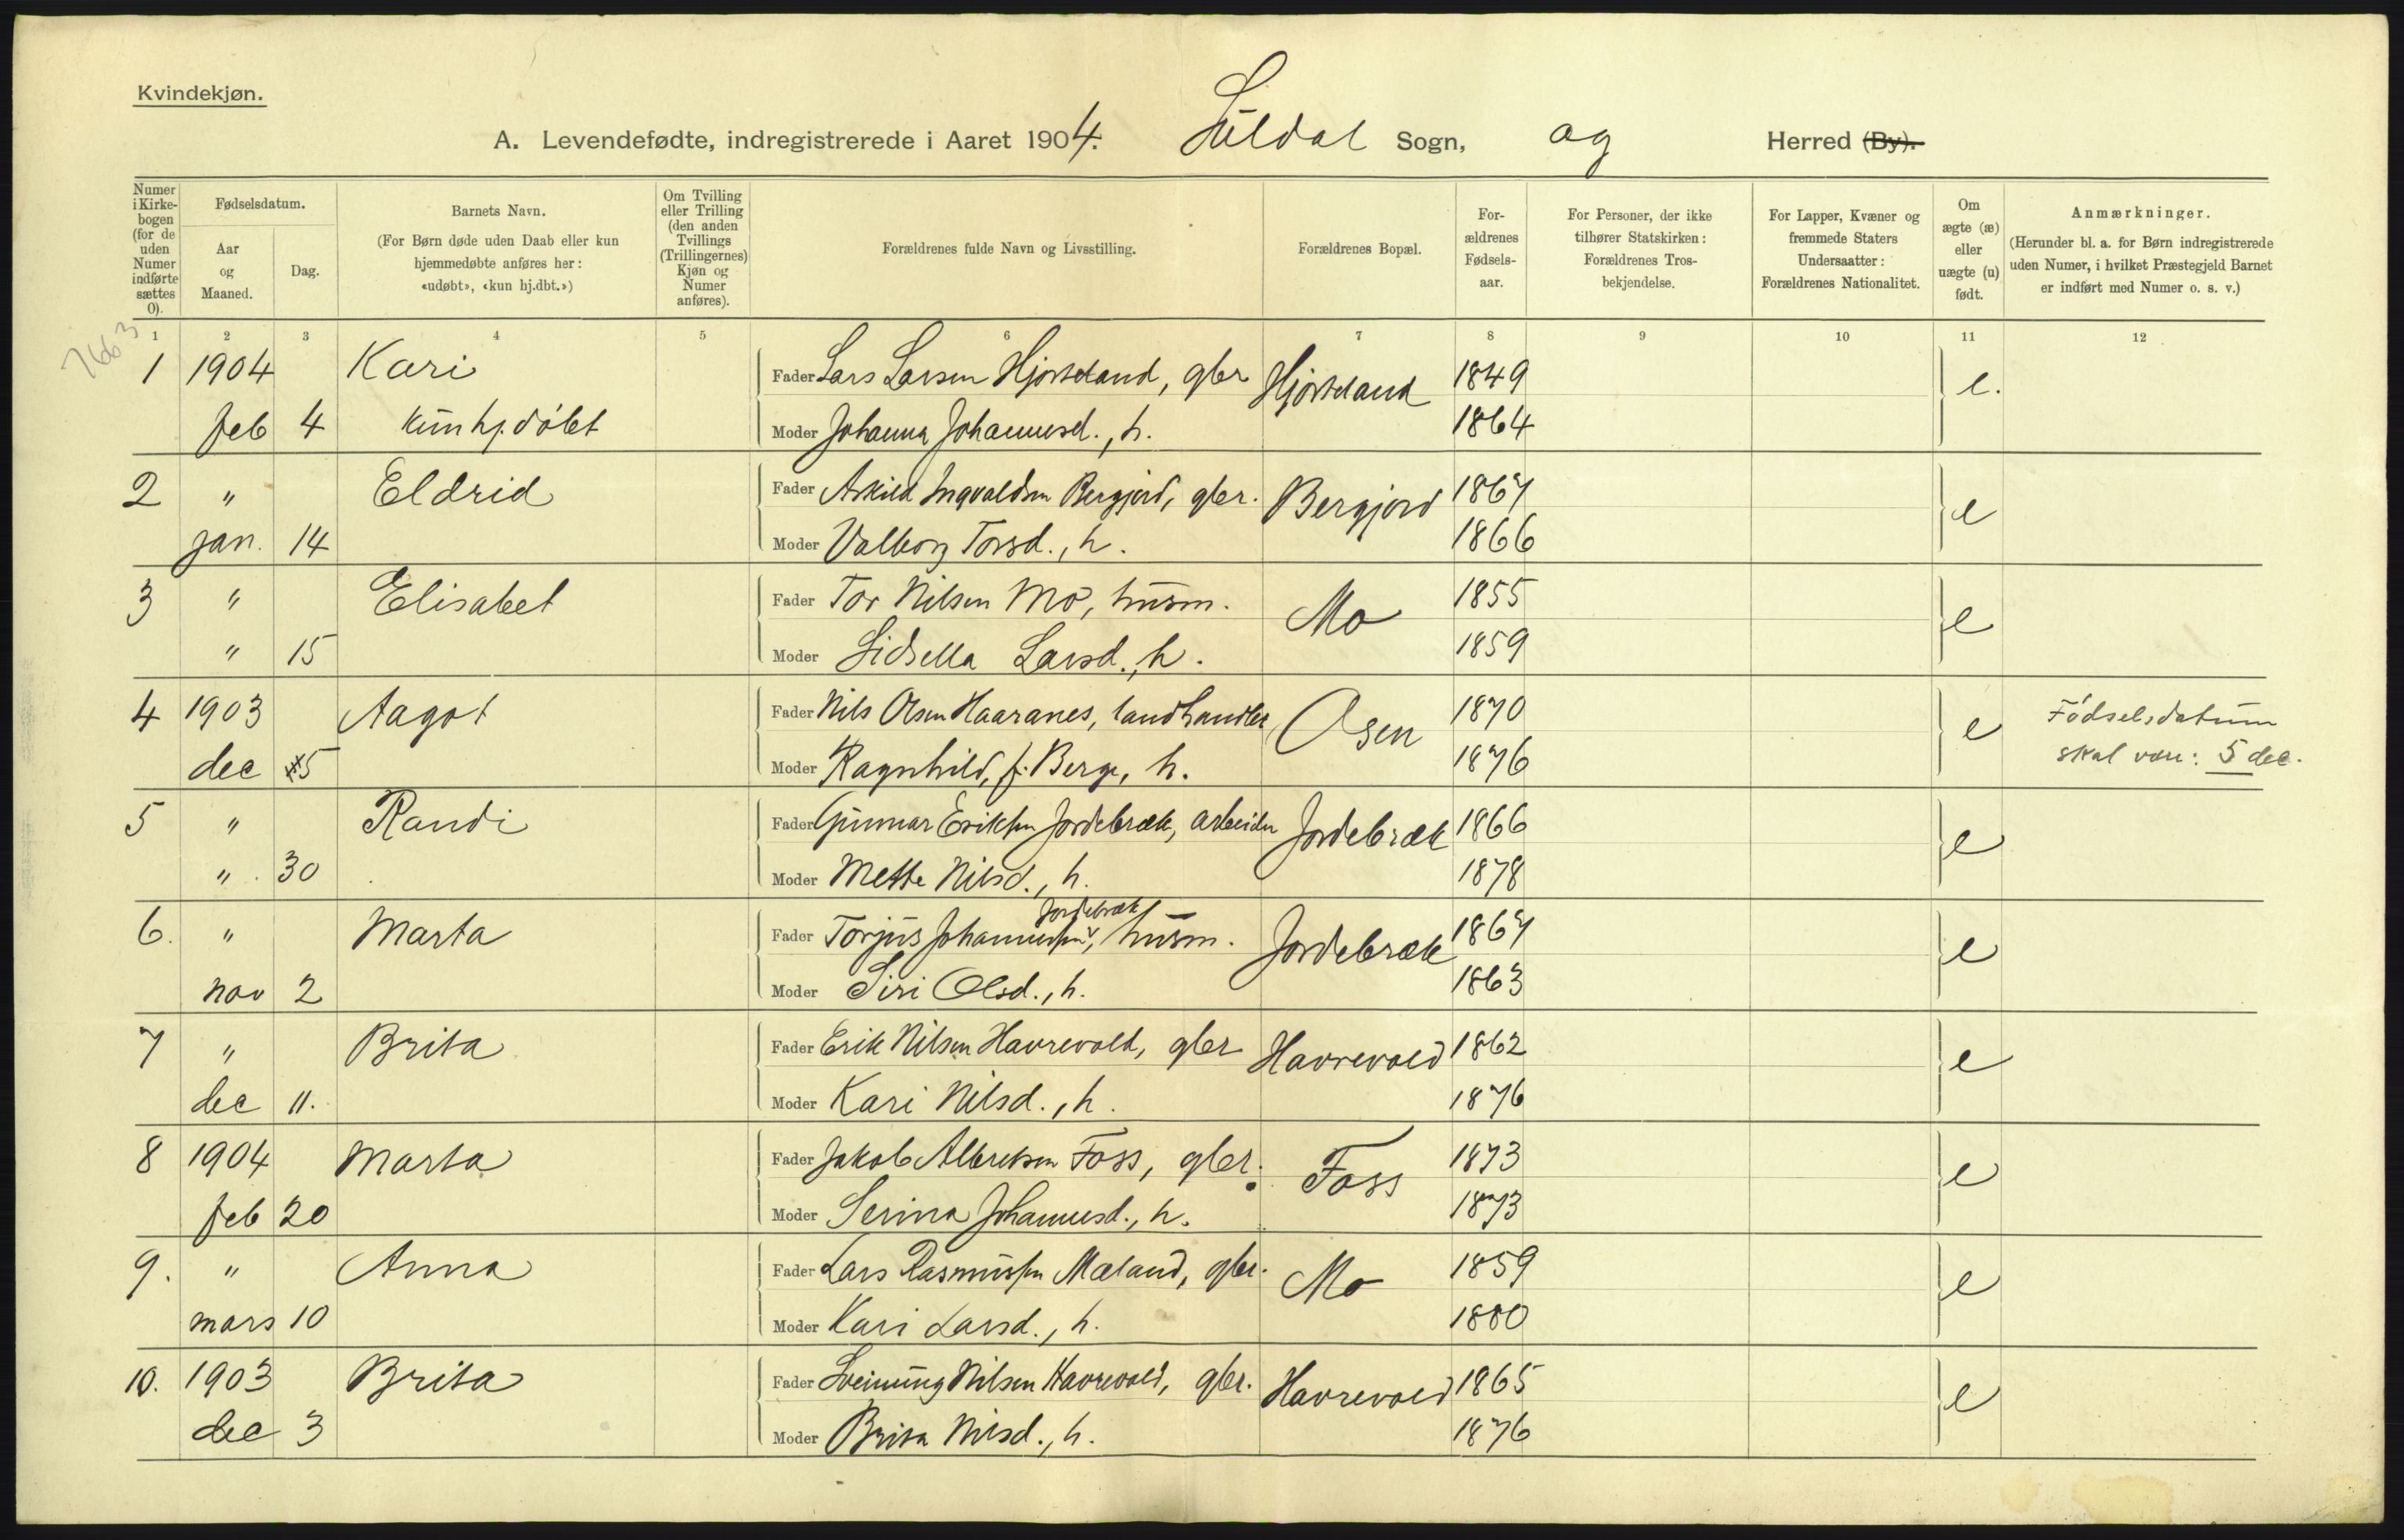 Kvindekjøn.
A. Levendefødte, indregistrerede i Aaret 1904. Suldal Sogn, og Herred (By).
Numer i Kirke- bogen (for de uden Numer indførte sættes 0).
Fødselsdatum.
Aar og Maaned.
Dag.
Barnets Navn.
(For Børn døde uden Daab eller kun
hjemmedøbte anføres her:
«udøbt», «kun hj.dbt.»)
Om Tvilling
eller Trilling
(den anden
Tvillings
(Trillingernes)
Kjøn og
Numer
anføres).
Forældrenes fulde Navn og Livsstilling.
Forældrenes Bopæl.
For-
ældrenes
Fødsels-
aar.
For Personer, der ikke
tilhører Statskirken:
Forældrenes Tros-
bekjendelse.
For Lapper, Kvæner og
fremmede Staters
Undersaatter:
Forældrenes Nationalitet.
Om
ægte (æ)
eller
uægte (u)
født.
Anmærkninger.
(Herunder bl. a. for Børn indregistrerede
uden Numer, i hvilket Præstegjeld Barnet
er indført med Numer o. s. v.)
7663
1 2 3 4 5 6 7 8 9 10 11 12
1 1904 Kari Fader Lars Larsen Hjorteland, gbr Hjorteland 1849 e.
feb 4 kun hj. døbt Moder Johanna Johannesd., h. 1864
2 " Eldrid Fader Askild Ingvaldsen Bergjord, gbr. Bergjord 1867 e
jan. 14 Moder Valborg Torsd., h. 1866
3 " Elisabet Fader Tor Nilsen Mo, husm. Mo 1855 e
" 15 Moder Lidsella Larsd., h. 1859
4 1903 Aagot Fader Nils Olsen Haaranes, landhandler Osen 1870 e Fødselsdatum
dec 5 Moder Ragnhild, f. Berge, h. 1876 skal være: 5 dec.
5 " Randi Fader Gunnar Eriksen Jordebræk, arbeider Jordebræk 1866 e
" 30 Moder Mette Nilsd., h. 1878
Jordebræk
6. " Marta Fader Torjus Johannessen, husm. Jordebræk 1867 e
nov 2 Moder Siri Olsd., h. 1863
7 " Brita Fader Erik Nilsen Havrevold, gbr Havrevold 1862 e
dec 11. Moder Kari Nilsd., h. 1876
8 1904 Marta Fader Jakob Albretsen Foss, gbr. Foss 1873 e
feb 20 Moder Serina Johannesd., h. 1873
9. " Anna Fader Lars Rasmussen Mæland, gbr. Mo 1859 e
mars 10 Moder Kari Larsd., h. 1880
10. 1903 Brita Fader Sveinung Nilsen Havrevold, gbr. Havrevold 1865 e
dec 3 Moder Brita Nilsd., h. 1876